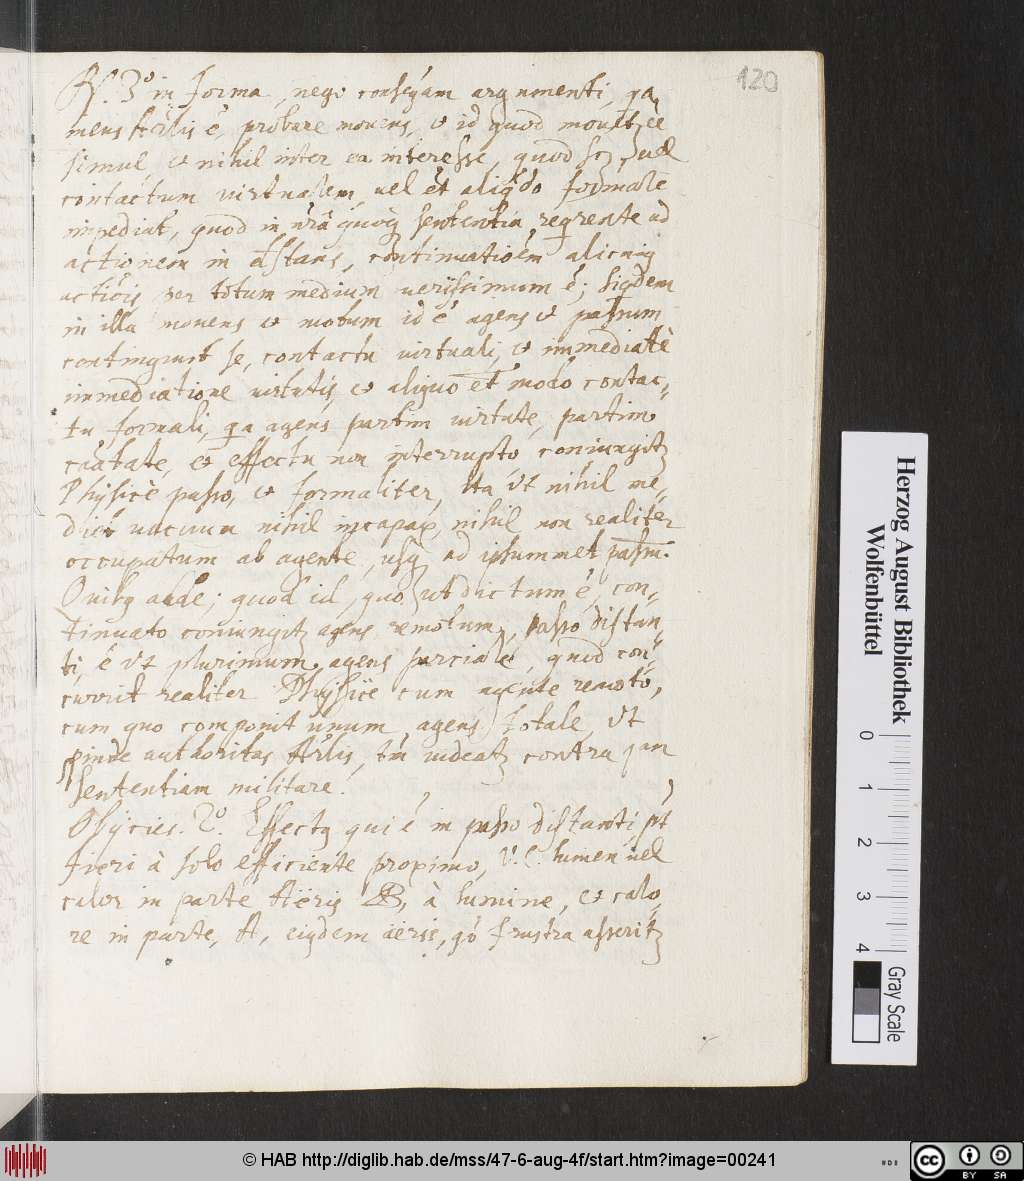 120
R. 3º in forma, nego conseqam argumenti, qa
mens Arlis ē, probare movens, et id quod movetr ee
simul, et nihil inter ea interesse, quod vel
contactum virtualem, vel ēt formale
impediat, quod in nrā sententia, ad
actionem in distans, continuatioem alicuius
actiois per totum medium verissimum ē; siqdem
in illa movens et motum id ē agens et passum
contingunt se, contactu virtuali, et immediatè
immediatione virtutis, et aliquo ēt modo contac-
tu formali, qa agens partim virtute, partim
et effectu non interrupto coniungitr
Physicè passo, et formaliter, ita ut nihil me-
diet vacuum nihil incapax, nihil non realiter
occupatum ab agente, usq ad ipsummet passm.
Quibq adde; quod id, quo ut dictum ē, con-
tinuato coniungitr agens remotum, passo distan-
ti, ē ut plurimum agens parciale, quod con-
currit realiter Physicè cum agente remoto,
cum quo componit unum agens totale, ut
proinde authoritas Arlis, tm videatr contra
sententiam militare.
Obijcies. 2º. Effectq qui ē in passo distanti pt
fieri à solo efficiente propimo, V.C. lumen vel
calor in parte Aëris B, à lumine, et calo-
re in parte, A, eiqdem aeris, gº frustra asseritr
Herzog August Bibliothek
Wolfenbüttel
0 1 2 3 4
Gray Scale
© HAB http://diglib.hab.de/mss/47-6-aug-4f/start.htm?image=00241
cc BY SA